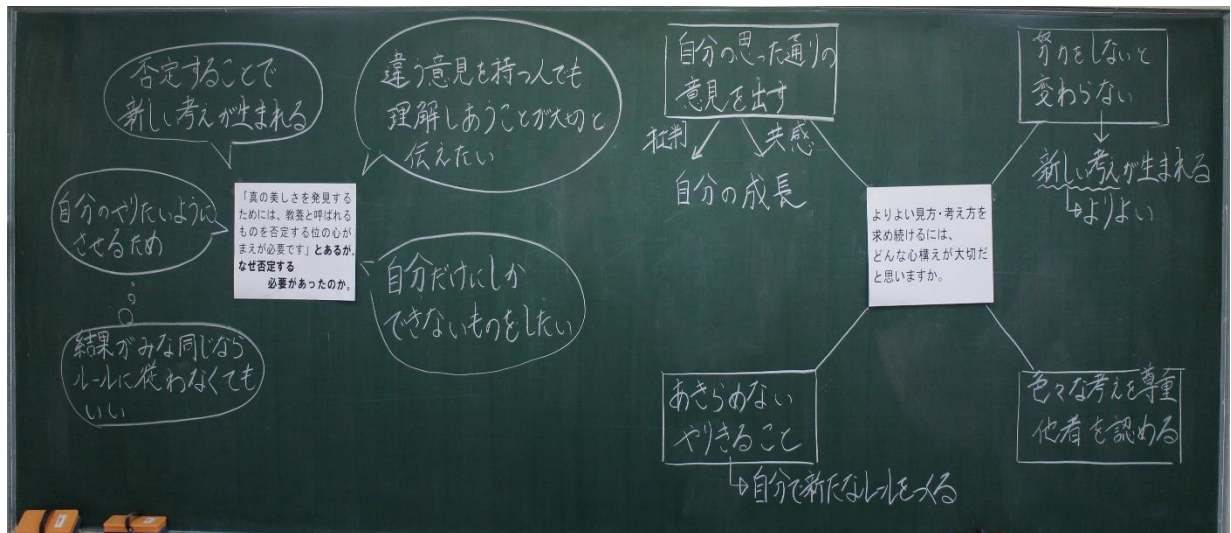 否定することで
新しい考えが生まれる
違う意見を持つ人でも
理解しあうことが大切と
伝えたい
自分のやりたいように
させるため
「真の美しさを発見する
ためには、教養と呼ばれる
ものを否定する位の心が
まえが必要です」とあるが、
なぜ否定する
必要があったのか。
自分だけにしか
できないものをしたい
結果がみな同じなら
ルールに従わなくても
いい
自分の思った通りの
意見を出す
批判
共感
自分の成長
努力をしないと
変わらない
新しい考えが生まれる
よりよい
よりよい見方・考え方を
求め続けるには、
どんな心構えが大切だ
と思いますか。
あきらめない
やりきること
自分で新たなルールをつくる
色々な考えを尊重
他者を認める